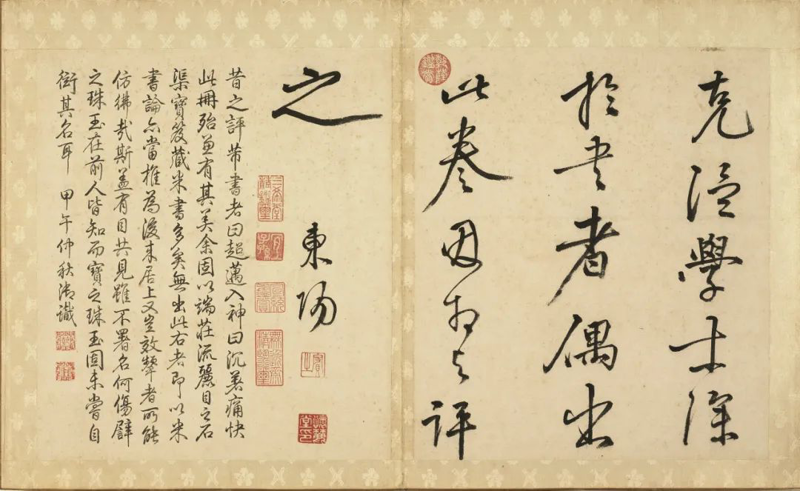 克温學士深
於書者偶出
此卷因相與評
之
東陽
昔之評芾書者曰超邁入神曰沉著痛快
此冊殆兼有其美余固以端莊流麗目之石
渠寶笈藏米書多矣無出此右者即以米
書論亦當推為後來居上又豈效顰者所能
仿彿哉斯蓋有目共見雖不署名何傷辟
之珠玉在前人皆知而寶之珠玉固未嘗自
衒其名耳 甲午仲秋御識